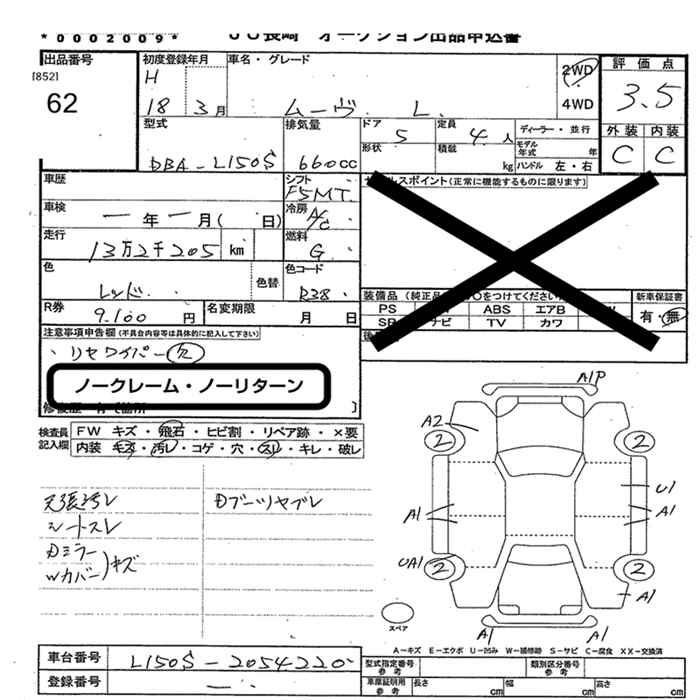 *0002009*
ＪＵ長崎 オークション出品申込書
出品番号
[852]
62
初度登録年月
H
18 3月
車名・グレード
ムーヴ L
2WD
4WD
評価点
3.5
外装 内装
C C
型式
DBA-L150S
排気量
660cc
ドア
5
形状
定員
4人
積載
kg
ディーラー・並行
モデル年式 年
ハンドル 左・右
車歴
シフト
F5MT
車検
ー年ー月( 日)
冷房
A/C
走行
13万2千205 km
燃料
G
色
レッド
色替
色コード
R38
R券
9,100 円
名変期限
月 日
セールスポイント(正常に機能するものに限ります)
装備品
PS ABS エアB
ナビ TV カワ
新車保証書
有・無
注意事項申告欄(不具合内容等は具体的に記入して下さい)
・リヤワイパー欠
ノークレーム・ノーリターン
検査員記入欄
FW キズ・飛石・ヒビ割・リペア跡・×要
内装 キズ・汚レ・コゲ・穴・スレ・キレ・破レ
天張汚レ
シートスレ
Dミラー
Wカバー)キズ
Dブーツヤブレ
A1P
A2
2 2
U1
A1 A1
UA1
2 2
A1
スペア
A1 A1
A－キズ E－エクボ U－凹み W－補修跡 S－サビ C－腐食 XX－交換済
車台番号
L150S-2054220
登録番号
ー
型式指定番号 参考
類別区分番号 参考
車庫証明用 参考
長さ cm 幅 cm 高さ cm